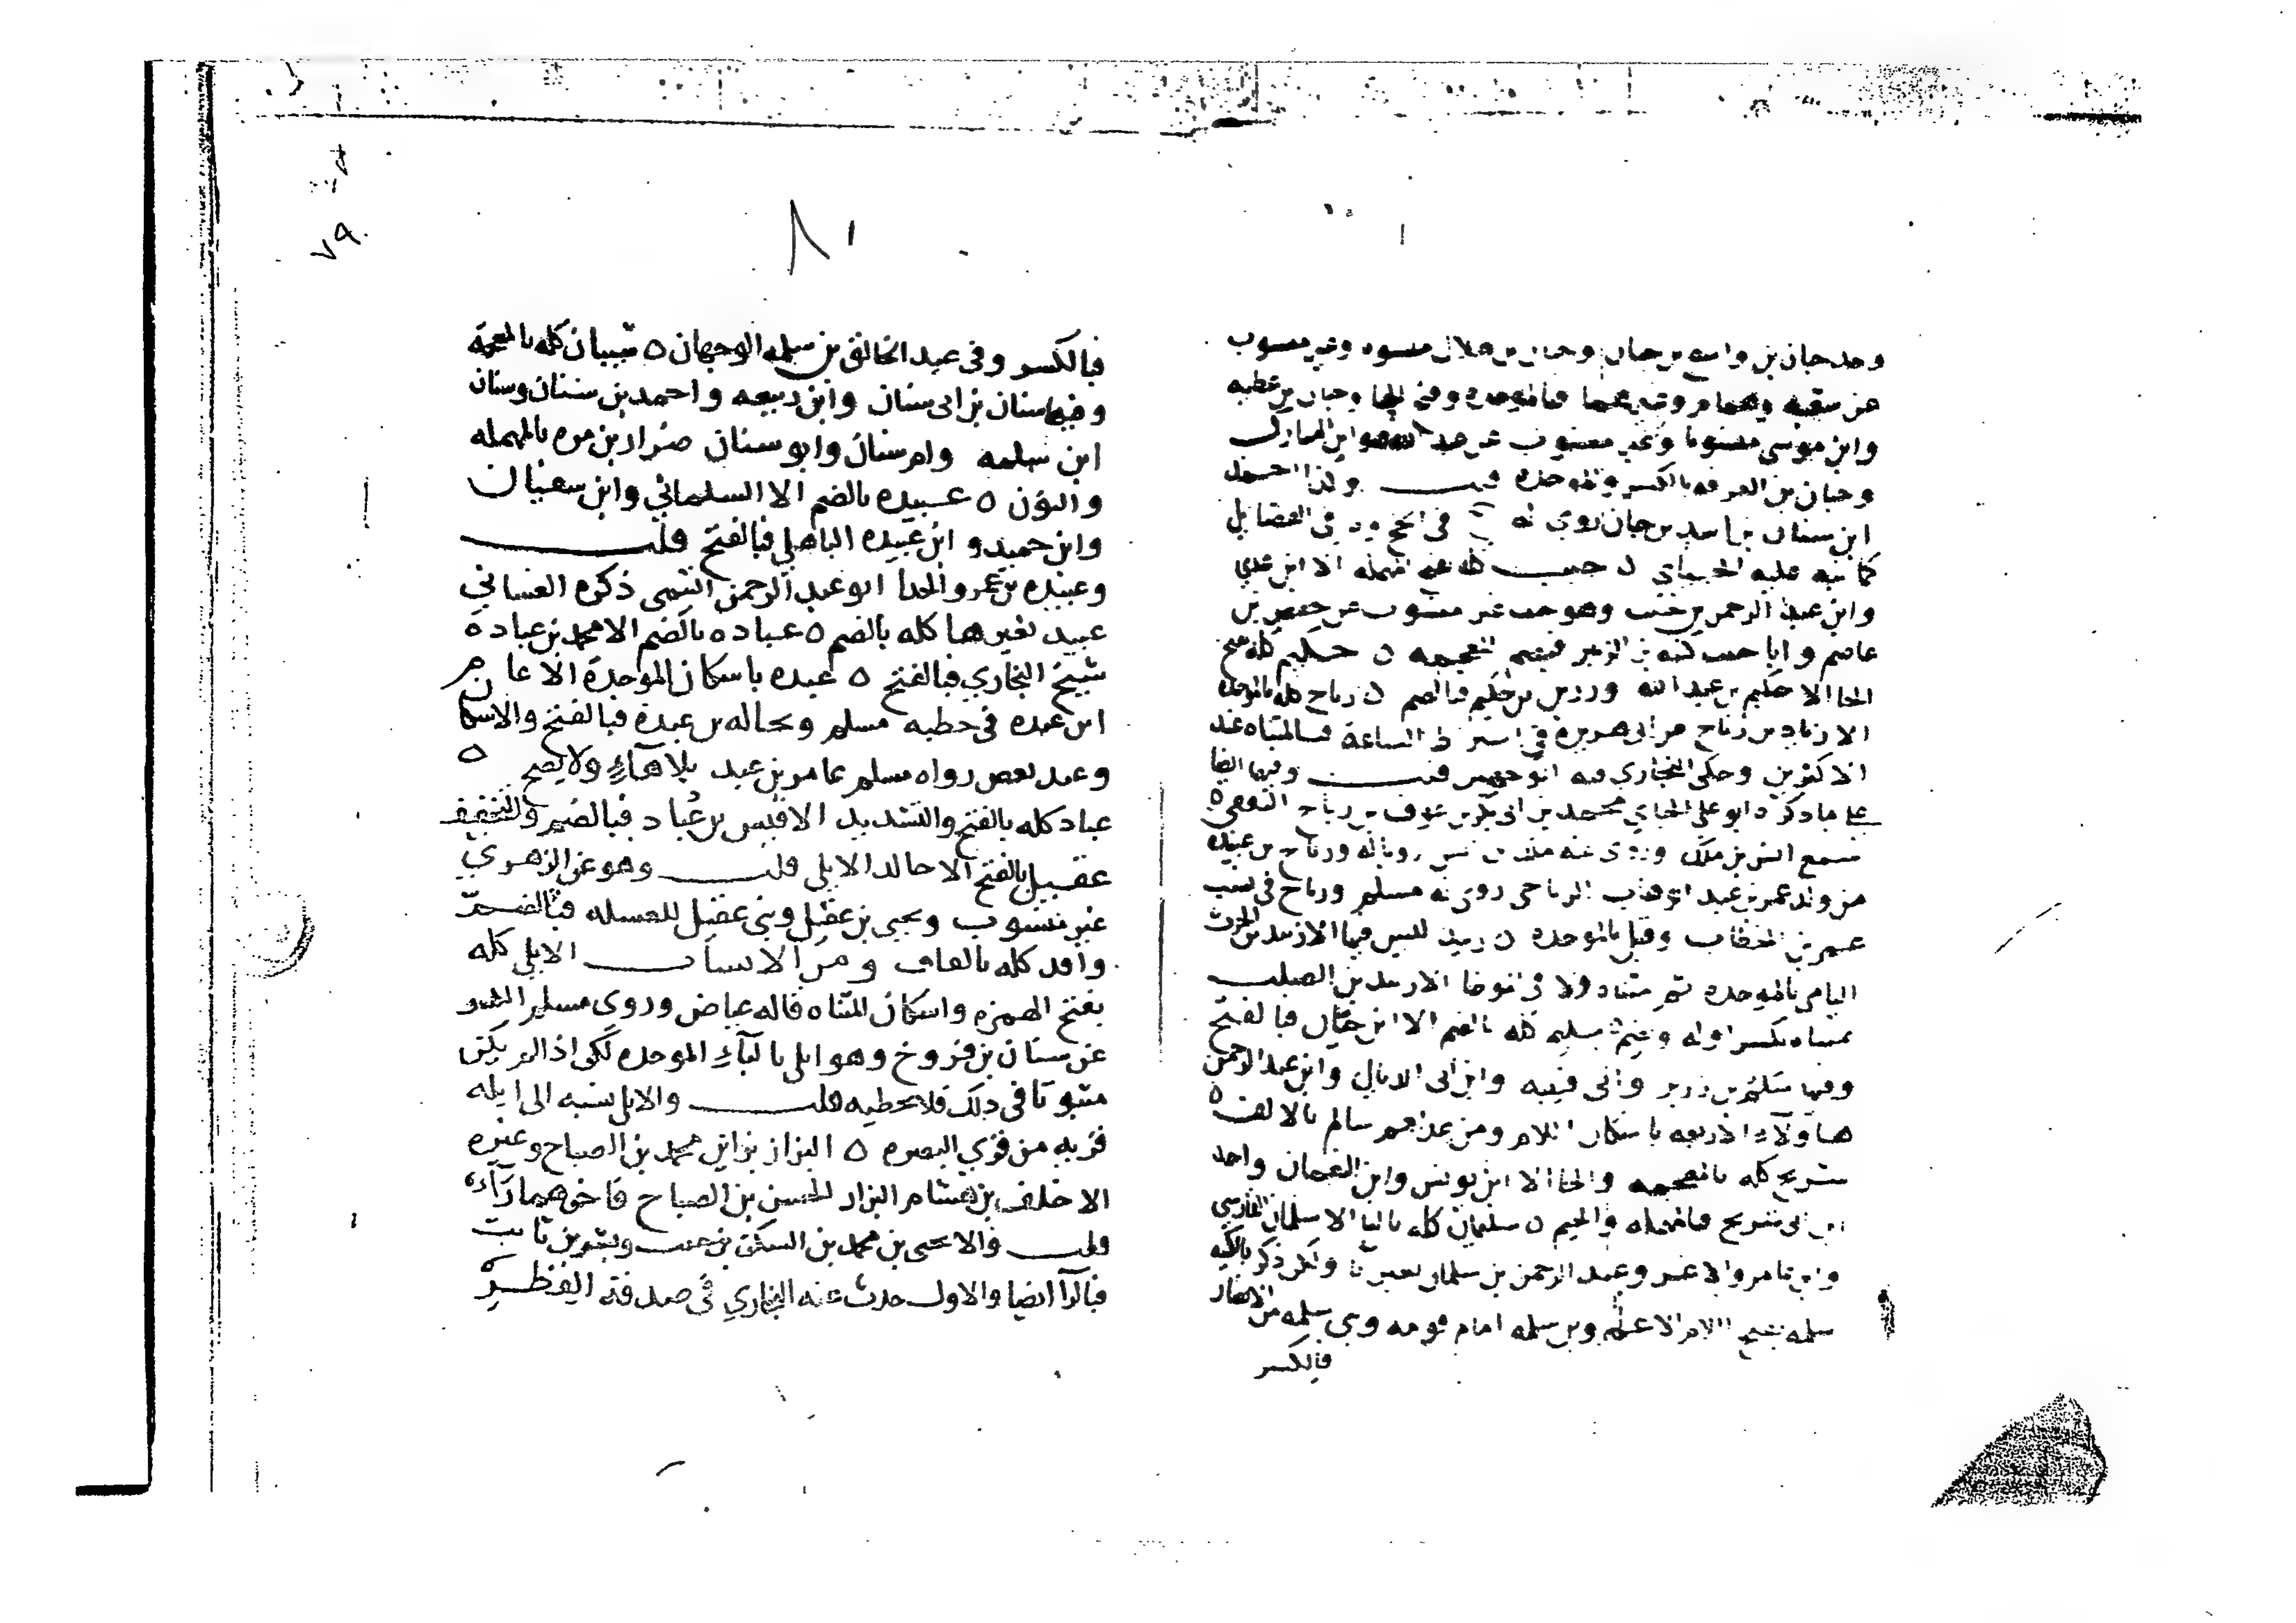 وجد حبان بن واسع بن حبان وحبان بن هلال منسوب وغير منسوب
عن شعبة وهمام وغيرهما فبالموحدة وفتح الحا وحبان بن عطيه
وابن موسى منسوبا وغير منسوب عن عبد الله هو ابن المبارك
وحبان بن العرقه بالكسر والموحده قلت وكذا احمد
ابن سنان بن اسد بن حبان روى له في الحج و في الفضايل
كما نبه عليه الجياني ٥ حبيب كله المهمله الا ابن عدي
وابن عبد الرحمن بن خبيب وهو خبيب غير منسوب عن حفص بن
عاصم وابا خبيب كنيه بن الزبير فبضم المعجمه ٥ حكيم كله بفتح
الحا الا حكيم بن عبد الله ورزيق بن حكيم فبالضم ٥ رباح كله بالموحده
الا زياد بن رياح عن ابى هريرة في اشراط الساعة فبالمثناه عند
الاكثرين وحكى البخاري فيه الوجهين قلت وفيها ايضا
على ما ذكره ابو على الجياني محمد بن ابى بكر بن عوف بن رياح الثقفي ٥
سمع انس بن ملك وروى عنه ملك بن انس ورياح بن عبيده
من ولد عمر بن عبد الوهاب الرياحى روى له مسلم ورياح في نسب
عمر بن الخطاب وقيل بالموحده ٥ زبيد ليس فيها الا زبيد بن الحرث
اليامي بالموحده ثم مثناه ولا في الموطا الا زييد بن الصلت
بمثناه بكسر اوله ويضم سليم كله بالضم الا ابن حيان فبالفتح
وفيها سلم بن زرير وابن قتيبه وابن ابى الذيال وابن عبد الرحمن
هاولاء الاربعه باسكان اللام ومن عداهم سالم بالالف ٥
شريح كله بالمعجمه والحا الا ابن يونس وابن النعمان واحمد
ابن ابى سريج فبالمهمله والجيم ٥ سليمان كله باليا الا سلمان الفارسي
وابن عامر والاغر وعبد الرحمن بن سلمان بغير يا ولكن ذكر بالكنيه
سلمه بفتح اللام الا عمرو بن سلمه امام قومه وبني سلمه من الانصار
فبالكسر
٨١
٧٩
فبالكسر وفى عبد الخالق بن سلمه الوجهان ٥ شيبان كله بالمعجمة
وفيها سنان بن ابى سنان وابن ربيعه واحمد بن سنان وسنان
ابن سلمه وام سنان وابو سنان ضرار بن مره بالمهمله
والنون ٥ عبيده بالضم الا السلماني وابن سفيان
وابن حميد وابن عبيده الباهلي فبالفتح قلت
وعبيده بن عمرو الحذا ابو عبد الرحمن التيمى ذكره الغساني
عبيد بغير ها كله بالضم ٥ عباده بالضم الا محمد بن عبادة
شيخ البخاري فبالفتح ٥ عبده باسكان الموحدة الا عامر
ابن عبده في خطبه مسلم وبجاله بن عبدة فبالفتح والاسكان
وعند بعض رواه مسلم عامر بن عبد بلا هاءٍ ولا يصح ٥
عباد كله بالفتح والتشديد الا قيس بن عُباد فبالضم والتخفيف
عقيل بالفتح الا خالد الايلي قلت وهو عن الزهري
غير منسوب ويحيى بن عقيل وبنى عقيل للقبيله فبالضم
واقد كله بالقاف ومن الانساب الايلى كله
بفتح الهمزه واسكان المثناه قاله عياض وروى مسلم الكثير
عن شيبان بن فروخ وهو ابلي بالباءِ الموحده لكن اذا لم يكن
منسوبا في ذلك فلا تخطيه قلت والابلي نسبه الى ابله
قريه من قري البصره ٥ البزاز بزاين محمد بن الصباح وغيره
الا خلف بن هشام البزار والحسن بن الصباح فاخرهما راء
قلت والا يحيى بن محمد بن السكن بن حبيب وبشر بن ثابت
فبالرا ايضا والاول حدث عنه البخاري في صدقة الفطر